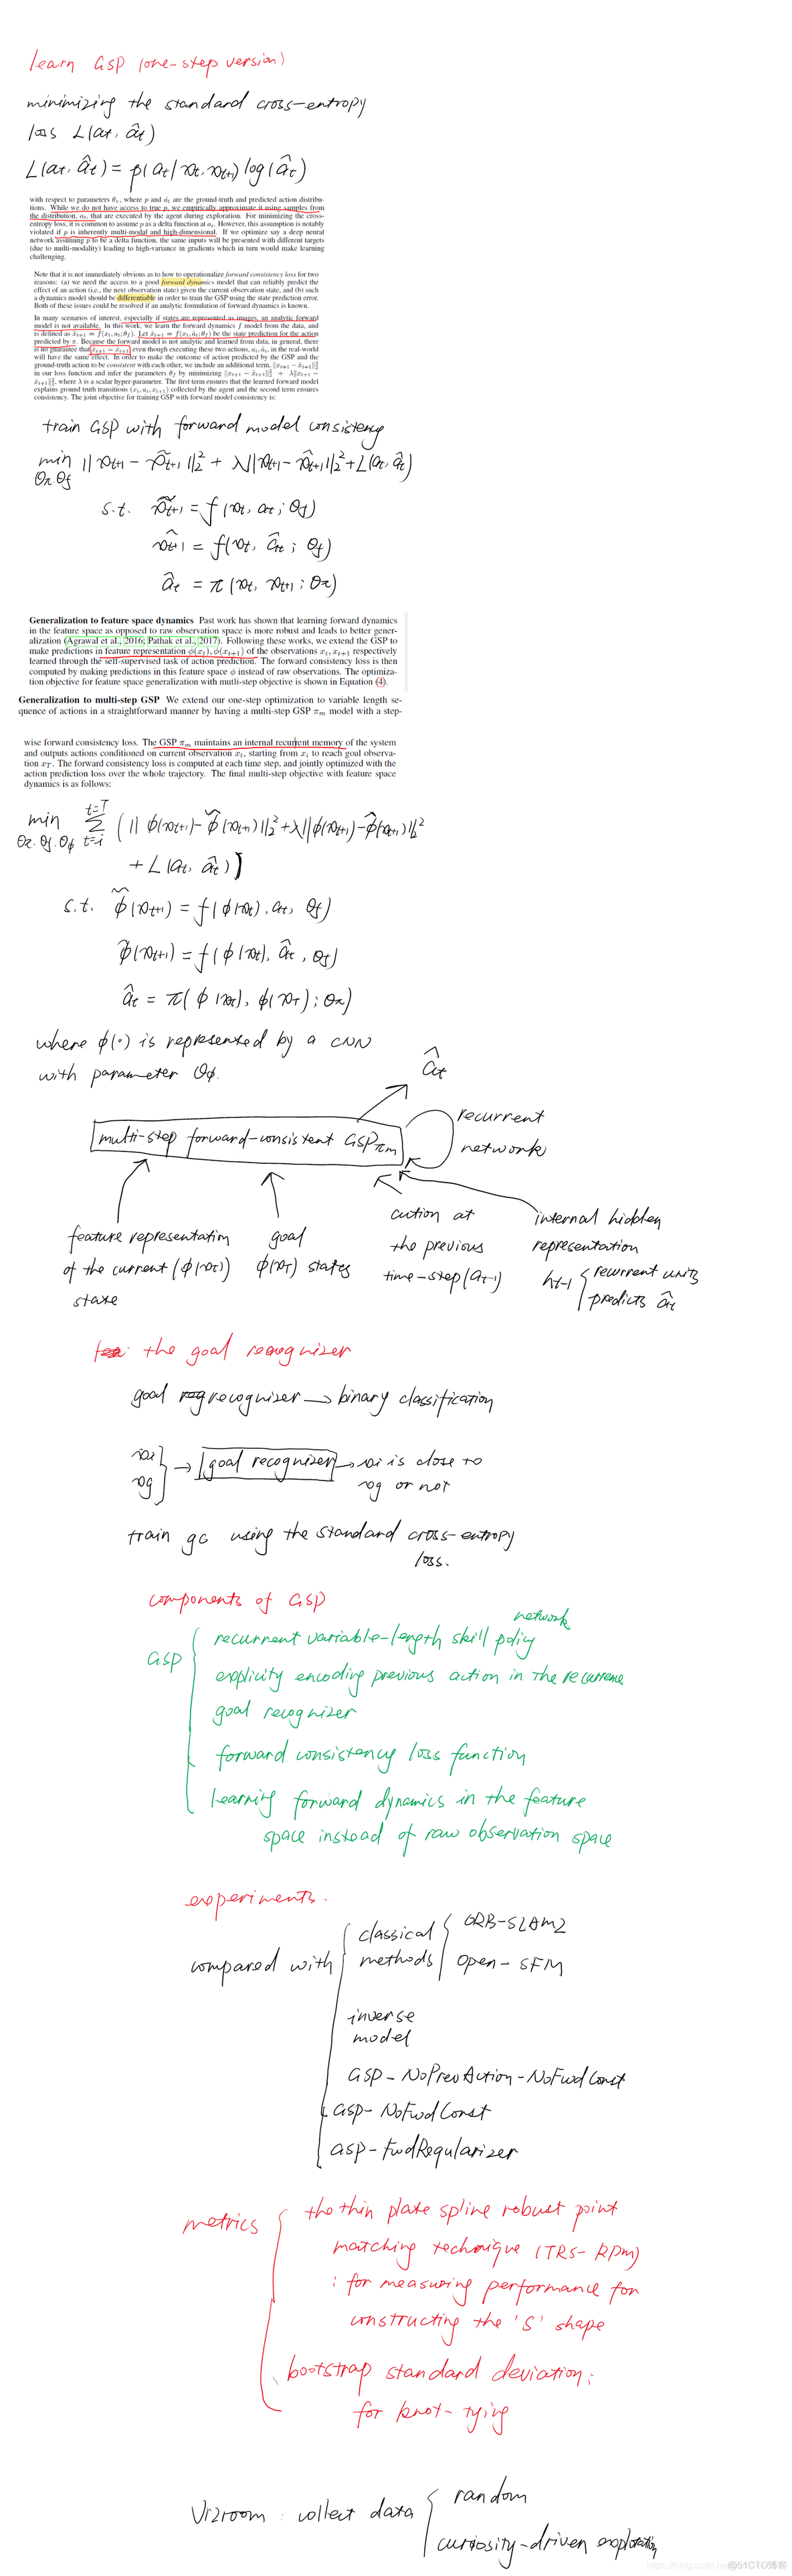 learn GSP (one-step version)
minimizing the standard cross-entropy
loss L(at, ât)
L(at, ât) = p(at|xt, xt+1) log(ât)
with respect to parameters θπ, where p and ât are the ground-truth and predicted action distribu-
tions. While we do not have access to true p, we empirically approximate it using samples from
the distribution, at, that are executed by the agent during exploration. For minimizing the cross-
entropy loss, it is common to assume p as a delta function at at. However, this assumption is notably
violated if p is inherently multi-modal and high-dimensional. If we optimize say a deep neural
network assuming p to be a delta function, the same inputs will be presented with different targets
(due to multi-modality) leading to high-variance in gradients which in turn would make learning
challenging.
Note that it is not immediately obvious as to how to operationalize forward consistency loss for two
reasons: (a) we need the access to a good forward dynamics model that can reliably predict the
effect of an action (i.e., the next observation state) given the current observation state, and (b) such
a dynamics model should be differentiable in order to train the GSP using the state prediction error.
Both of these issues could be resolved if an analytic formulation of forward dynamics is known.
In many scenarios of interest, especially if states are represented as images, an analytic forward
model is not available. In this work, we learn the forward dynamics f model from the data, and
is defined as x̃t+1 = f(xt, at; θf). Let x̂t+1 = f(xt, ât; θf) be the state prediction for the action
predicted by π. Because the forward model is not analytic and learned from data, in general, there
is no guarantee that x̃t+1 = x̂t+1 even though executing these two actions, at, ât, in the real-world
will have the same effect. In order to make the outcome of action predicted by the GSP and the
ground-truth action to be consistent with each other, we include an additional term, ||xt+1 − x̂t+1||²₂
in our loss function and infer the parameters θf by minimizing ||xt+1 − x̃t+1||²₂ + λ||xt+1 −
x̂t+1||²₂, where λ is a scalar hyper-parameter. The first term ensures that the learned forward model
explains ground truth transitions (xt, at, xt+1) collected by the agent and the second term ensures
consistency. The joint objective for training GSP with forward model consistency is:
train GSP with forward model consistency
min ||xt+1 - x̃t+1||²₂ + λ||xt+1 - x̂t+1||²₂ + L(at, ât)
θπ, θf
s.t. x̃t+1 = f(xt, at; θf)
x̂t+1 = f(xt, ât; θf)
ât = π(xt, xt+1; θπ)
Generalization to feature space dynamics Past work has shown that learning forward dynamics
in the feature space as opposed to raw observation space is more robust and leads to better gener-
alization (Agrawal et al., 2016; Pathak et al., 2017). Following these works, we extend the GSP to
make predictions in feature representation ϕ(xt), ϕ(xt+1) of the observations xt, xt+1 respectively
learned through the self-supervised task of action prediction. The forward consistency loss is then
computed by making predictions in this feature space ϕ instead of raw observations. The optimiza-
tion objective for feature space generalization with mutli-step objective is shown in Equation (4).
Generalization to multi-step GSP We extend our one-step optimization to variable length se-
quence of actions in a straightforward manner by having a multi-step GSP πm model with a step-
wise forward consistency loss. The GSP πm maintains an internal recurrent memory of the system
and outputs actions conditioned on current observation xt, starting from xi to reach goal observa-
tion xT. The forward consistency loss is computed at each time step, and jointly optimized with the
action prediction loss over the whole trajectory. The final multi-step objective with feature space
dynamics is as follows:
min Σ t=i t=T (||ϕ(xt+1) - ϕ̃(xt+1)||²₂ + λ||ϕ(xt+1) - ϕ̂(xt+1)||²₂
θπ, θf, θϕ
+ L(at, ât))
s.t. ϕ̃(xt+1) = f(ϕ(xt), at, θf)
ϕ̂(xt+1) = f(ϕ(xt), ât, θf)
ât = π(ϕ(xt), ϕ(xT); θπ)
where ϕ(·) is represented by a CNN
with parameter θϕ.
ât
multi-step forward-consistent GSP πm
recurrent
network
feature representation
of the current (ϕ(xt))
state
goal
ϕ(xT) states
action at
the previous
time-step (at-1)
internal hidden
representation
ht-1 { recurrent units
predicts ât
the goal recognizer
goal recognizer → binary classification
xi
xg
goal recognizer → xi is close to
xg or not
train gc using the standard cross-entropy
loss.
components of GSP
GSP
recurrent variable-length skill policy network
explicity encoding previous action in the recurrence
goal recognizer
forward consistency loss function
learning forward dynamics in the feature
space instead of raw observation space
experiments.
compared with
classical
methods
ORB-SLAM2
Open-SFM
inverse
model
GSP-NoPrevAction-NoFwdConst
GSP-NoFwdConst
GSP-FwdRegularizer
metrics
the thin plate spline robust point
matching technique (TRS-RPM)
: for measuring performance for
constructing the 'S' shape
bootstrap standard deviation:
for knot-tying
Vizroom: collect data
random
curiosity-driven exploration
@51CTO博客